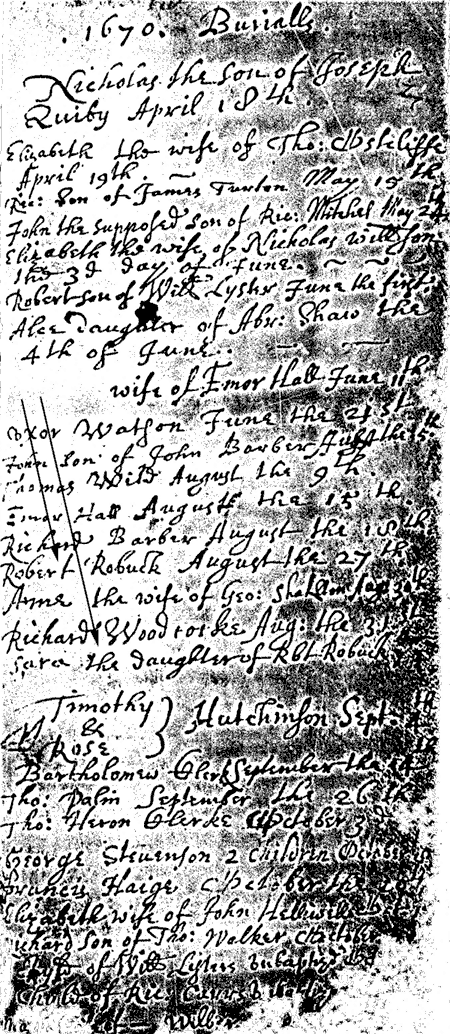 1670. Burialls.
Nicholas the son of Joseph
Quiby April 18th.
Elizabeth the wife of Tho:
April 19th.
Ric: Son of James Turton May 15th
John the supposed son of Ric: Mitchel May 24
Elizabeth the wife of Nicholas willson
the 3d day of June.
Robert son of Will Lyster June the first
Alce daughter of Abr: Shaw the
4th of June.
wife of Emor Hall June 11th
vxor Watson June the 21st.
John Son of John Barber the
Thomas Wild August the 9th.
Emor Hall August the 15th.
Richard Barber August the 18th
Robert Robuck August the 27th
Anne the wife of Geo: Aug 30th
Richard Aug: the 31st
Sara the daughter of Rbt Robuck
Timothy
&
Rose
Hutchinson Sept:
Bartholomew Clerk September the
Tho: Palin September the 26th
Tho: Heron Clercke October 3d
George Stevenson 2 children October
Francis Haige October the
Elizabeth wife of John
Richard Son of Tho: Walker October
of Will Lysters
Child of Ric: